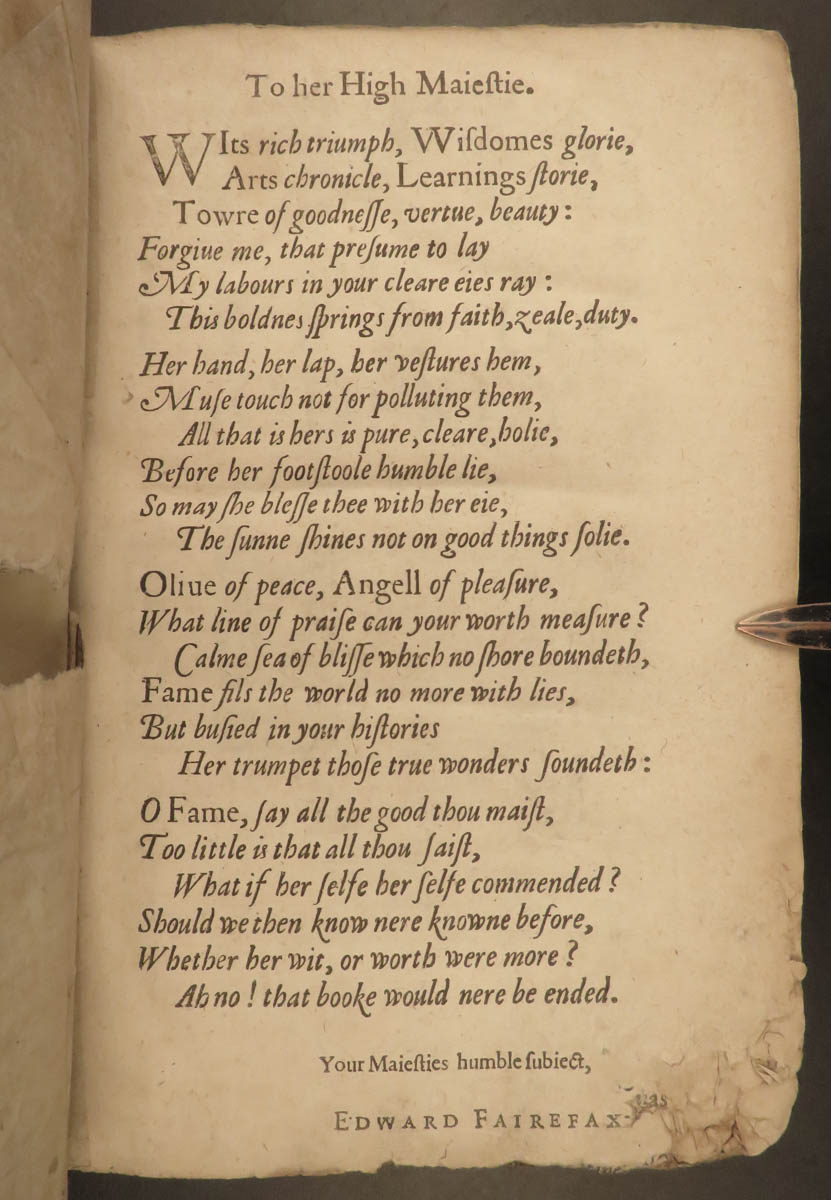 To her High Maieſtie.
WIts rich triumph, Wiſdomes glorie,
Arts chronicle, Learnings ſtorie,
Towre of goodneſſe, vertue, beauty:
Forgiue me, that preſume to lay
My labours in your cleare eies ray:
This boldnes ſprings from faith, zeale, duty.
Her hand, her lap, her veſtures hem,
Muſe touch not for polluting them,
All that is hers is pure, cleare, holie,
Before her footſtoole humble lie,
So may ſhe bleſſe thee with her eie,
The ſunne ſhines not on good things ſolie.
Oliue of peace, Angell of pleaſure,
What line of praiſe can your worth meaſure?
Calme ſea of bliſſe which no ſhore boundeth,
Fame fils the world no more with lies,
But buſied in your hiſtories
Her trumpet thoſe true wonders ſoundeth:
O Fame, ſay all the good thou maiſt,
Too little is that all thou ſaiſt,
What if her ſelfe her ſelfe commended?
Should we then know nere knowne before,
Whether her wit, or worth were more?
Ah no! that booke would nere be ended.
Your Maieſties humble ſubiect,
EDWARD FAIREFAX